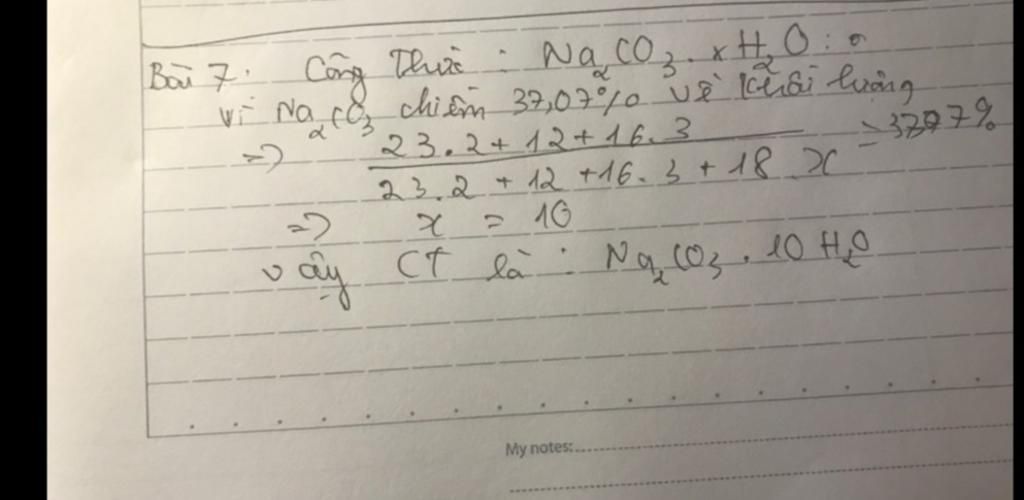 Bài 7: Công thức: Na2CO3.xH2O:
vì Na2CO3 chiếm 37,07% về khối lượng
=> 23.2+12+16.3
= 37,07%
23.2 +12 +16.3 +18 x
=> x = 10
vậy CT là: Na2CO3.10H2O
My notes: